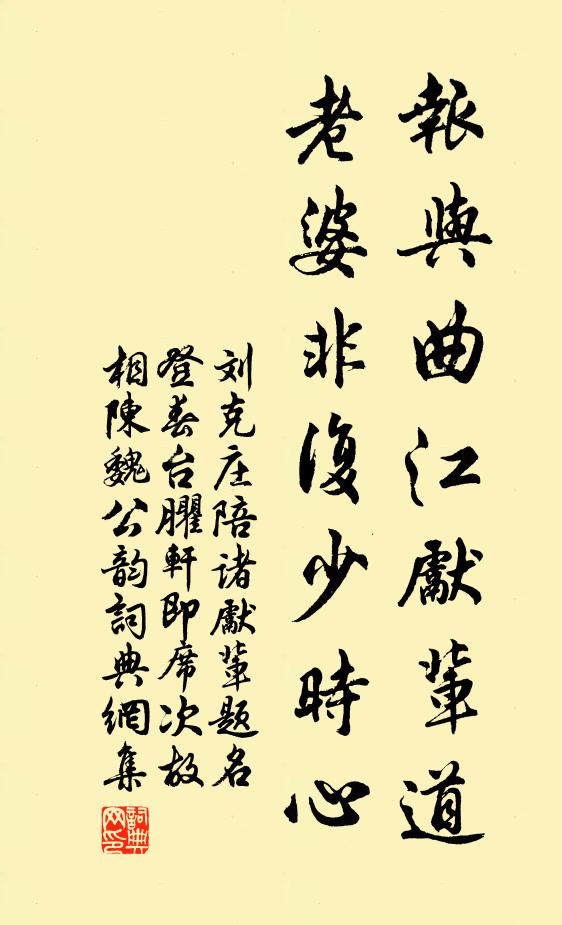 報與曲江獻輩道
老婆非復少時心
刘克庄陪诸獻輩题名
登春台臞軒即席次故
相陳魏公韵詞典網集
詞典網印